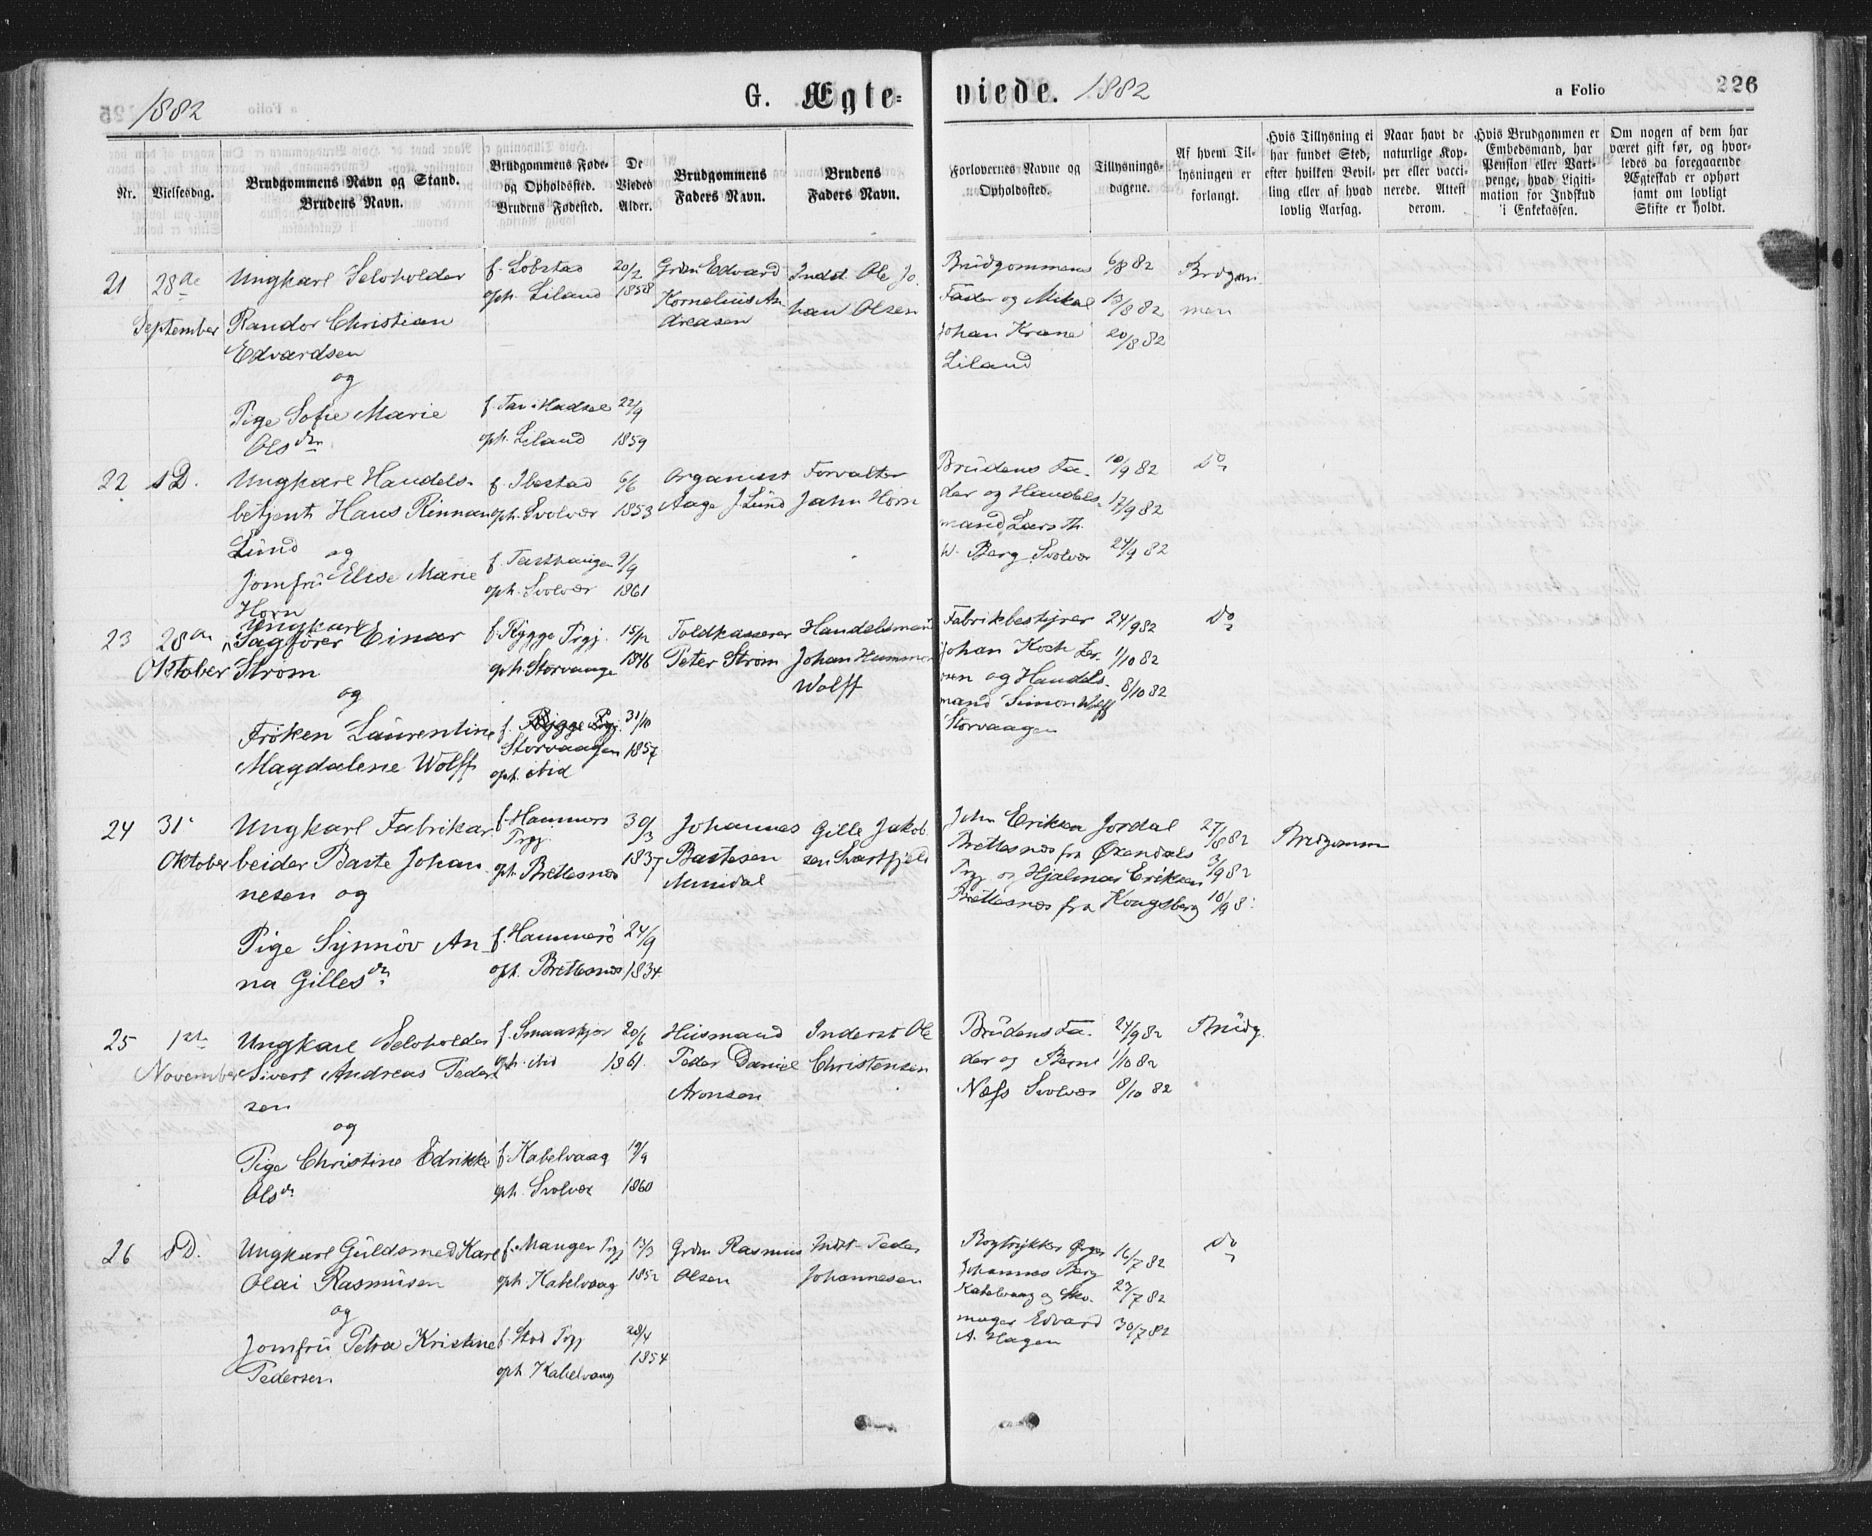 1882
G. Ægte= viede. 1882
a Folio 226
Nr.
Vielsesdag.
Brudgommens Navn og Stand.
Brudens Navn.
Brudgommens Føde-
og Opholdssted.
Brudens Fødested.
De
Viedes
Alder.
Brudgommens
Faders Navn.
Brudens
Faders Navn.
Forlovernes Navne og
Opholdssted.
Tillysnings-
dagene.
Af hvem Til-
lysningen er
forlangt.
Hvis Tillysning ei
har fundet Sted,
efter hvilken Bevil-
ling eller af hvad
lovlig Aarsag.
Naar havt de
naturlige Kop-
per eller vacci-
nerede. Attest
derom.
Hvis Brudgommen er
Embedsmand, har
Pension eller Vart-
penge, hvad Ligiti-
mation for Indskud
i Enkekassen.
Om nogen af dem har
været gift før, og hvor-
ledes da foregaaende
Ægteskab er ophørt
samt om lovligt
Skifte er holdt.
21
28de
September
Ungkarl Selvholder
Randor Christian
Edvardsen
og
Pige Sofie Marie
Olsdtr
f. Lobstad
oph. Liland
20/2
1858
f. Tan i Hadsel
oph. Liland
22/9
1859
Grdm Edvard
Kornelius An
dreasen
Indst. Ole Jo.
han Olsen
Brudgommens
Fader og Mikal
Johan Krane
Liland
6/8 82
13/8 82
20/8 82
Brdgom
men
22
s D.
Ungkarl Handels-
betjent Hans Rinnan
Lund og
Jomfru Elise Marie
Horn
f. Ibestad
oph. Svolvær
6/6
1853
oph. Svolvær
9/9
1861
Organist
Aage J Lund
Forvalter
Jahn Horn
Brudens Fa-
der og Handels-
mand Lars Th.
W. Berg Svolvær
10/9 82
17/9 82
24/9 82
Do
23
28de
Oktober
Ungkarl
Sagfører Einar
Strøm
og
Frøken Laurentine
Magdalene Wolff
f. Rygge Prgj.
oph. Storvaage
15/12
1846
f. Rygge Prgj.
Storvaagen
oph. ibid
31/10
1857
Toldkasserer
Peter Strøm
Handelsmand
Johan Hammer
Wolff
Fabrikbestyrer
Johan Koch Ler.
ven og Handels-
mand Simon Wolff
Storvaagen
24/9 82
1/10 82
8/10 82
Do
24
31
Oktober
Ungkarl Fabrikar
beider Baste Johan
nesen og
Pige Synnøv An
na Gillesdtr
f. Hammers
Prgj.
oph. Brettesnæs
30/3
1837
f. Hammerø
oph. Brettesnæs
24/9
1834
Johannes
Bastesen
Mundal
Gille Jakob
sen Svartfjeld
John Eriksen Jordal
Brettesnæs fra Øxendals
Prgj og Hjalmar Eriksen
Brettesnæs fra Kongsberg
27/8 82
3/9 82
10/9 8
Brudgomm
25
1ste
November
Ungkarl Selvholder
Sivert Andreas Peder
sen
og
Pige Christine Edrikke
Olsdr
f. Smaaskjær
oph. ibid
20/6
1861
f. Kabelvaag
oph. Svolvær
19/9
1860
Husmand
Peder Daniel
Aronsen
Inderst Ole
Christensen
Brudens Fa-
der og Bernt
Næss Svolvær
24/9 82
1/10 82
8/10 82
Brudg.
26
s D.
Ungkarl Guldsmed Karl
Olai Rasmusen
og
Jomfru Petra Kristine
Pedersen
f. Manger Prgj
oph. Kabelvaag
13/3
1852
f. Stod Prgj
oph. Kabelvaag
28/4
1854
Grdm Rasmus
Olsen
Indst Peder
Johannesen
Bogtrykker
Johannes Berg
Kabelvaag og Sko-
mager Edvard
A. Hagen
16/7 82
23/7 82
30/7 82
Do